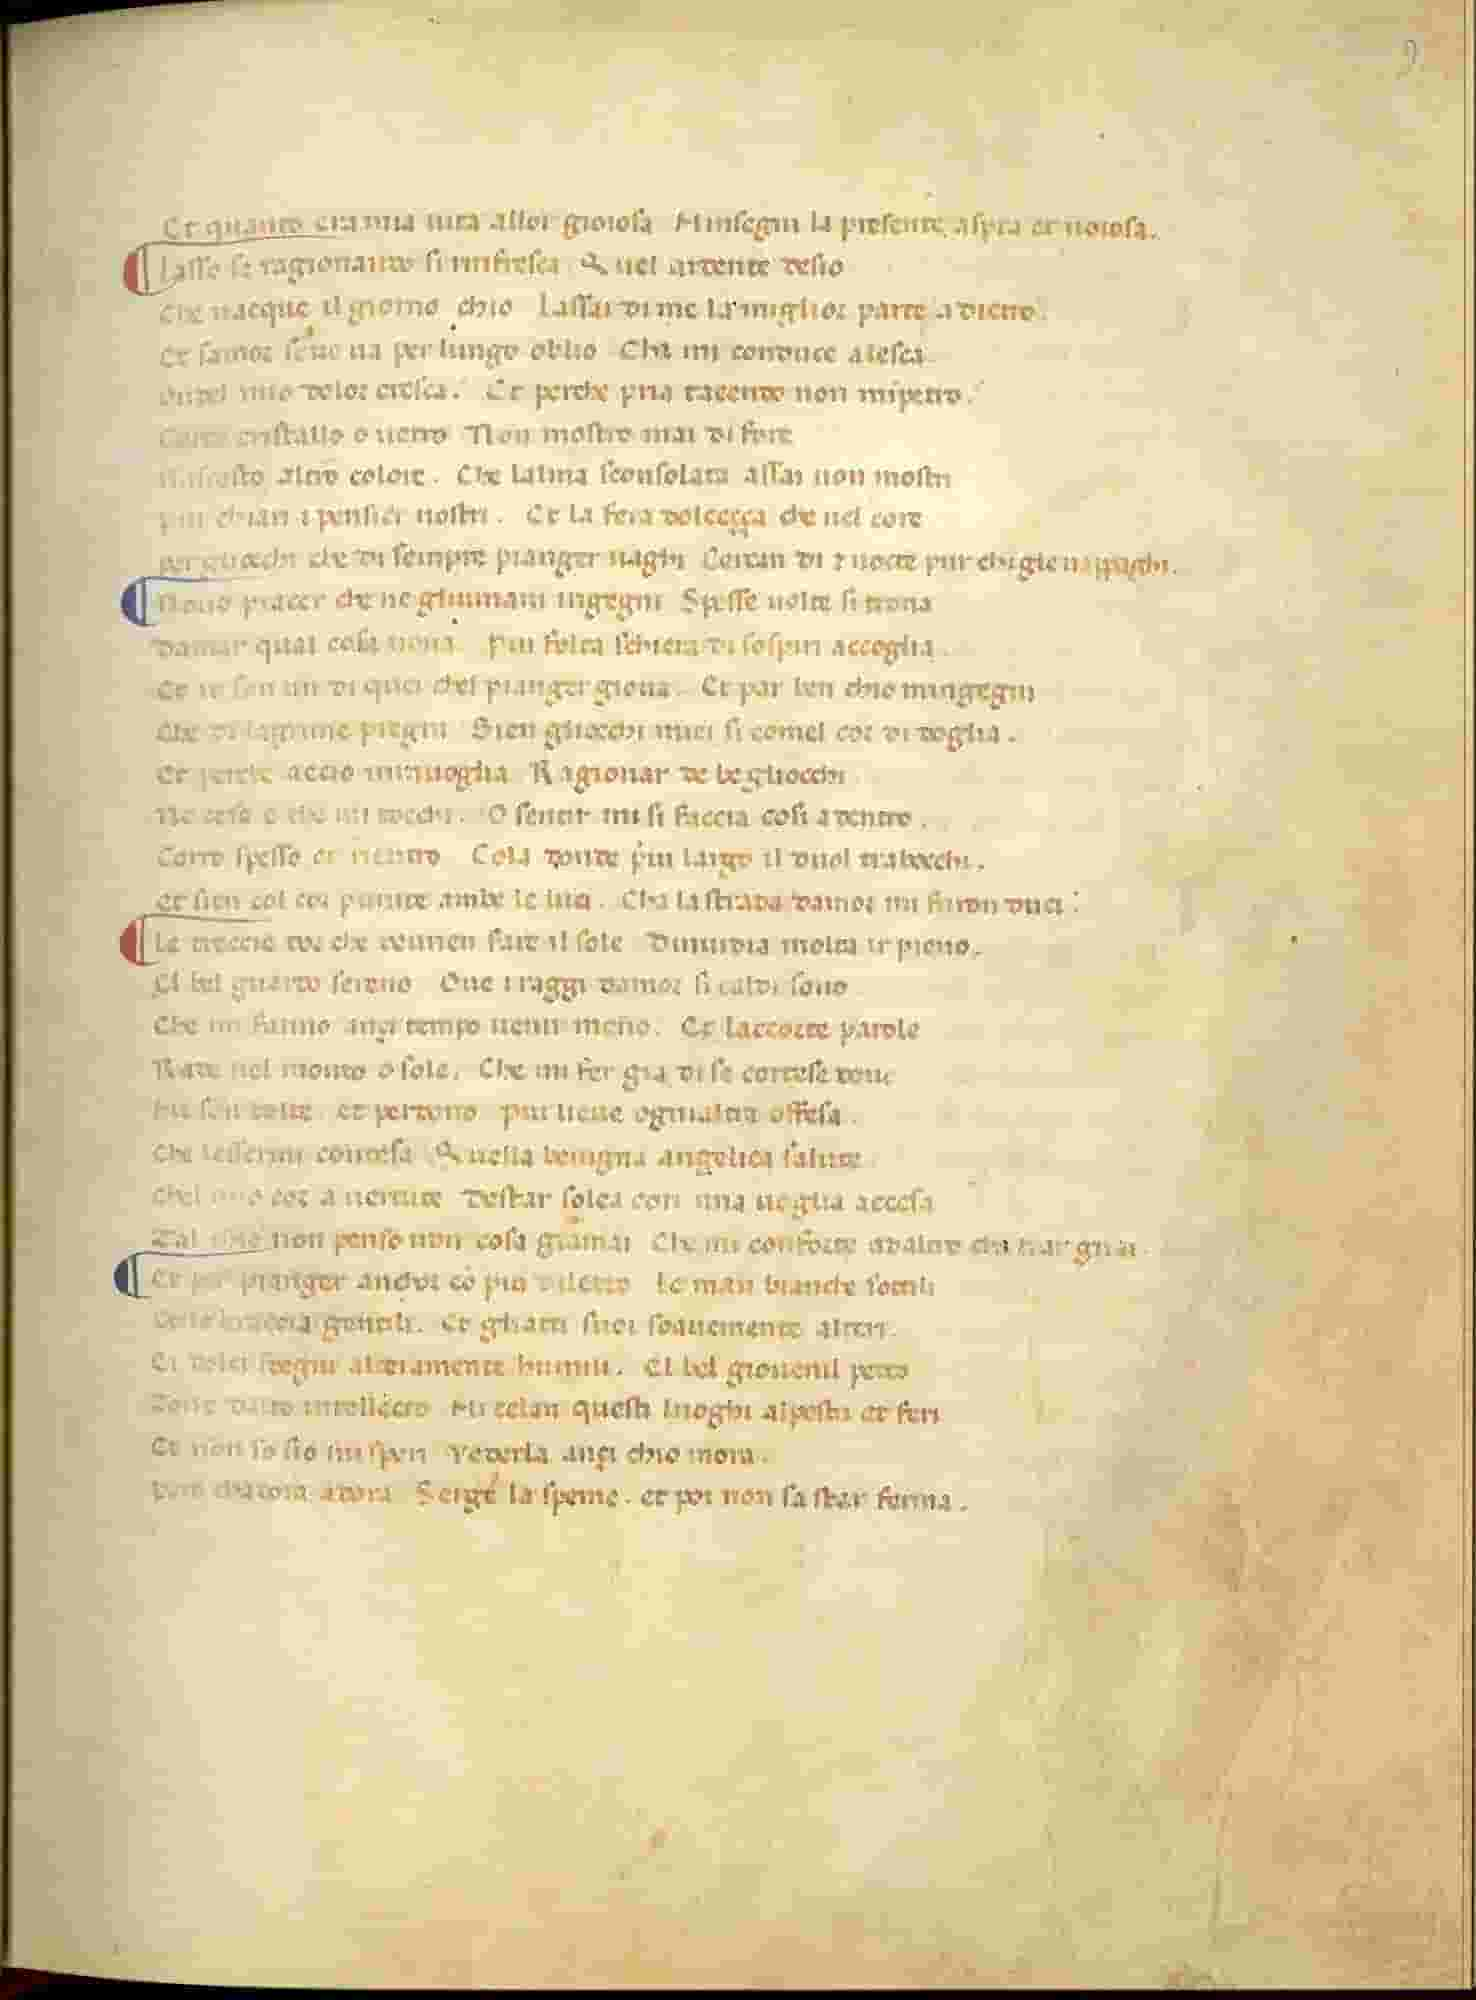 9
Et quanto era mia uita allor gioiosa Minsegni la presente aspra et noiosa.
Lasso se ragionando si rinfresca Quel ardente desio
Che nacque il giorno chio Lassai di me la miglior parte a dietro.
Et samor sene ua per lungo oblio Chi mi conduce alesca
Ondel mio dolor cresca. Et perche pria tacendo non mipetro.
Certo cristallo o uetro Non mostro mai di fore
Nascosto altro colore. Che lalma sconsolata assai non mostri
piu chiari i pensier nostri. Et la fera dolceçça che nel core
per gliocchi che di sempre pianger uaghi Cercan di 7 nocte pur chi glen appaghi.
Nouo piacer che ne gliumani ingegni Spesse uolte si troua
Damar qual cosa noua. Piu folta schiera di sospiri accoglia.
Et io son un di quei chel pianger gioua. Et par ben chio mingegni
Che di lagrime pregni Sien gliocchi miei si comel cor di doglia.
Et perche accio minuoglia Ragionar de begliocchi
Ne cosa e che mi tocchi. O sentir mi si faccia cosi a dentro.
Corro spesso et rientro Cola donde piu largo il duol trabocchi.
et sien col cor punite ambe le luci. Cha la strada damor mi furon duci.
Le treccie dor che deurien fare il sole Dinuidia molta ir pieno.
El bel guardo sereno Oue i raggi damor si caldi sono
Che mi fanno anzi tempo uenir meno. Et laccorte parole
Rade nel mondo o sole. Che mi fer gia di se cortese dono
Mi son tolte. et perdono piu lieue ognialtra offesa.
Che lessermi contesa Quella benigna angelica salute
Chel mio cor a uertute Destar solea con una uoglia accesa
Tal chio non penso udir cosa giamai Che mi conforte adaltro cha trar guai.
Et per pianger anchor cō piu diletto Le man bianche sottili
Et le braccia gentili. Et gliatti suoi soauemente alteri.
Ei dolci sdegni alteramente humili. El bel giouenil petto
Torre dalto intellecto Mi celan questi luoghi alpestri et feri
Et non so sio mi speri Vederla anzi chio mora.
Pero chadora adora Sergé la speme. et poi non sa star ferma.